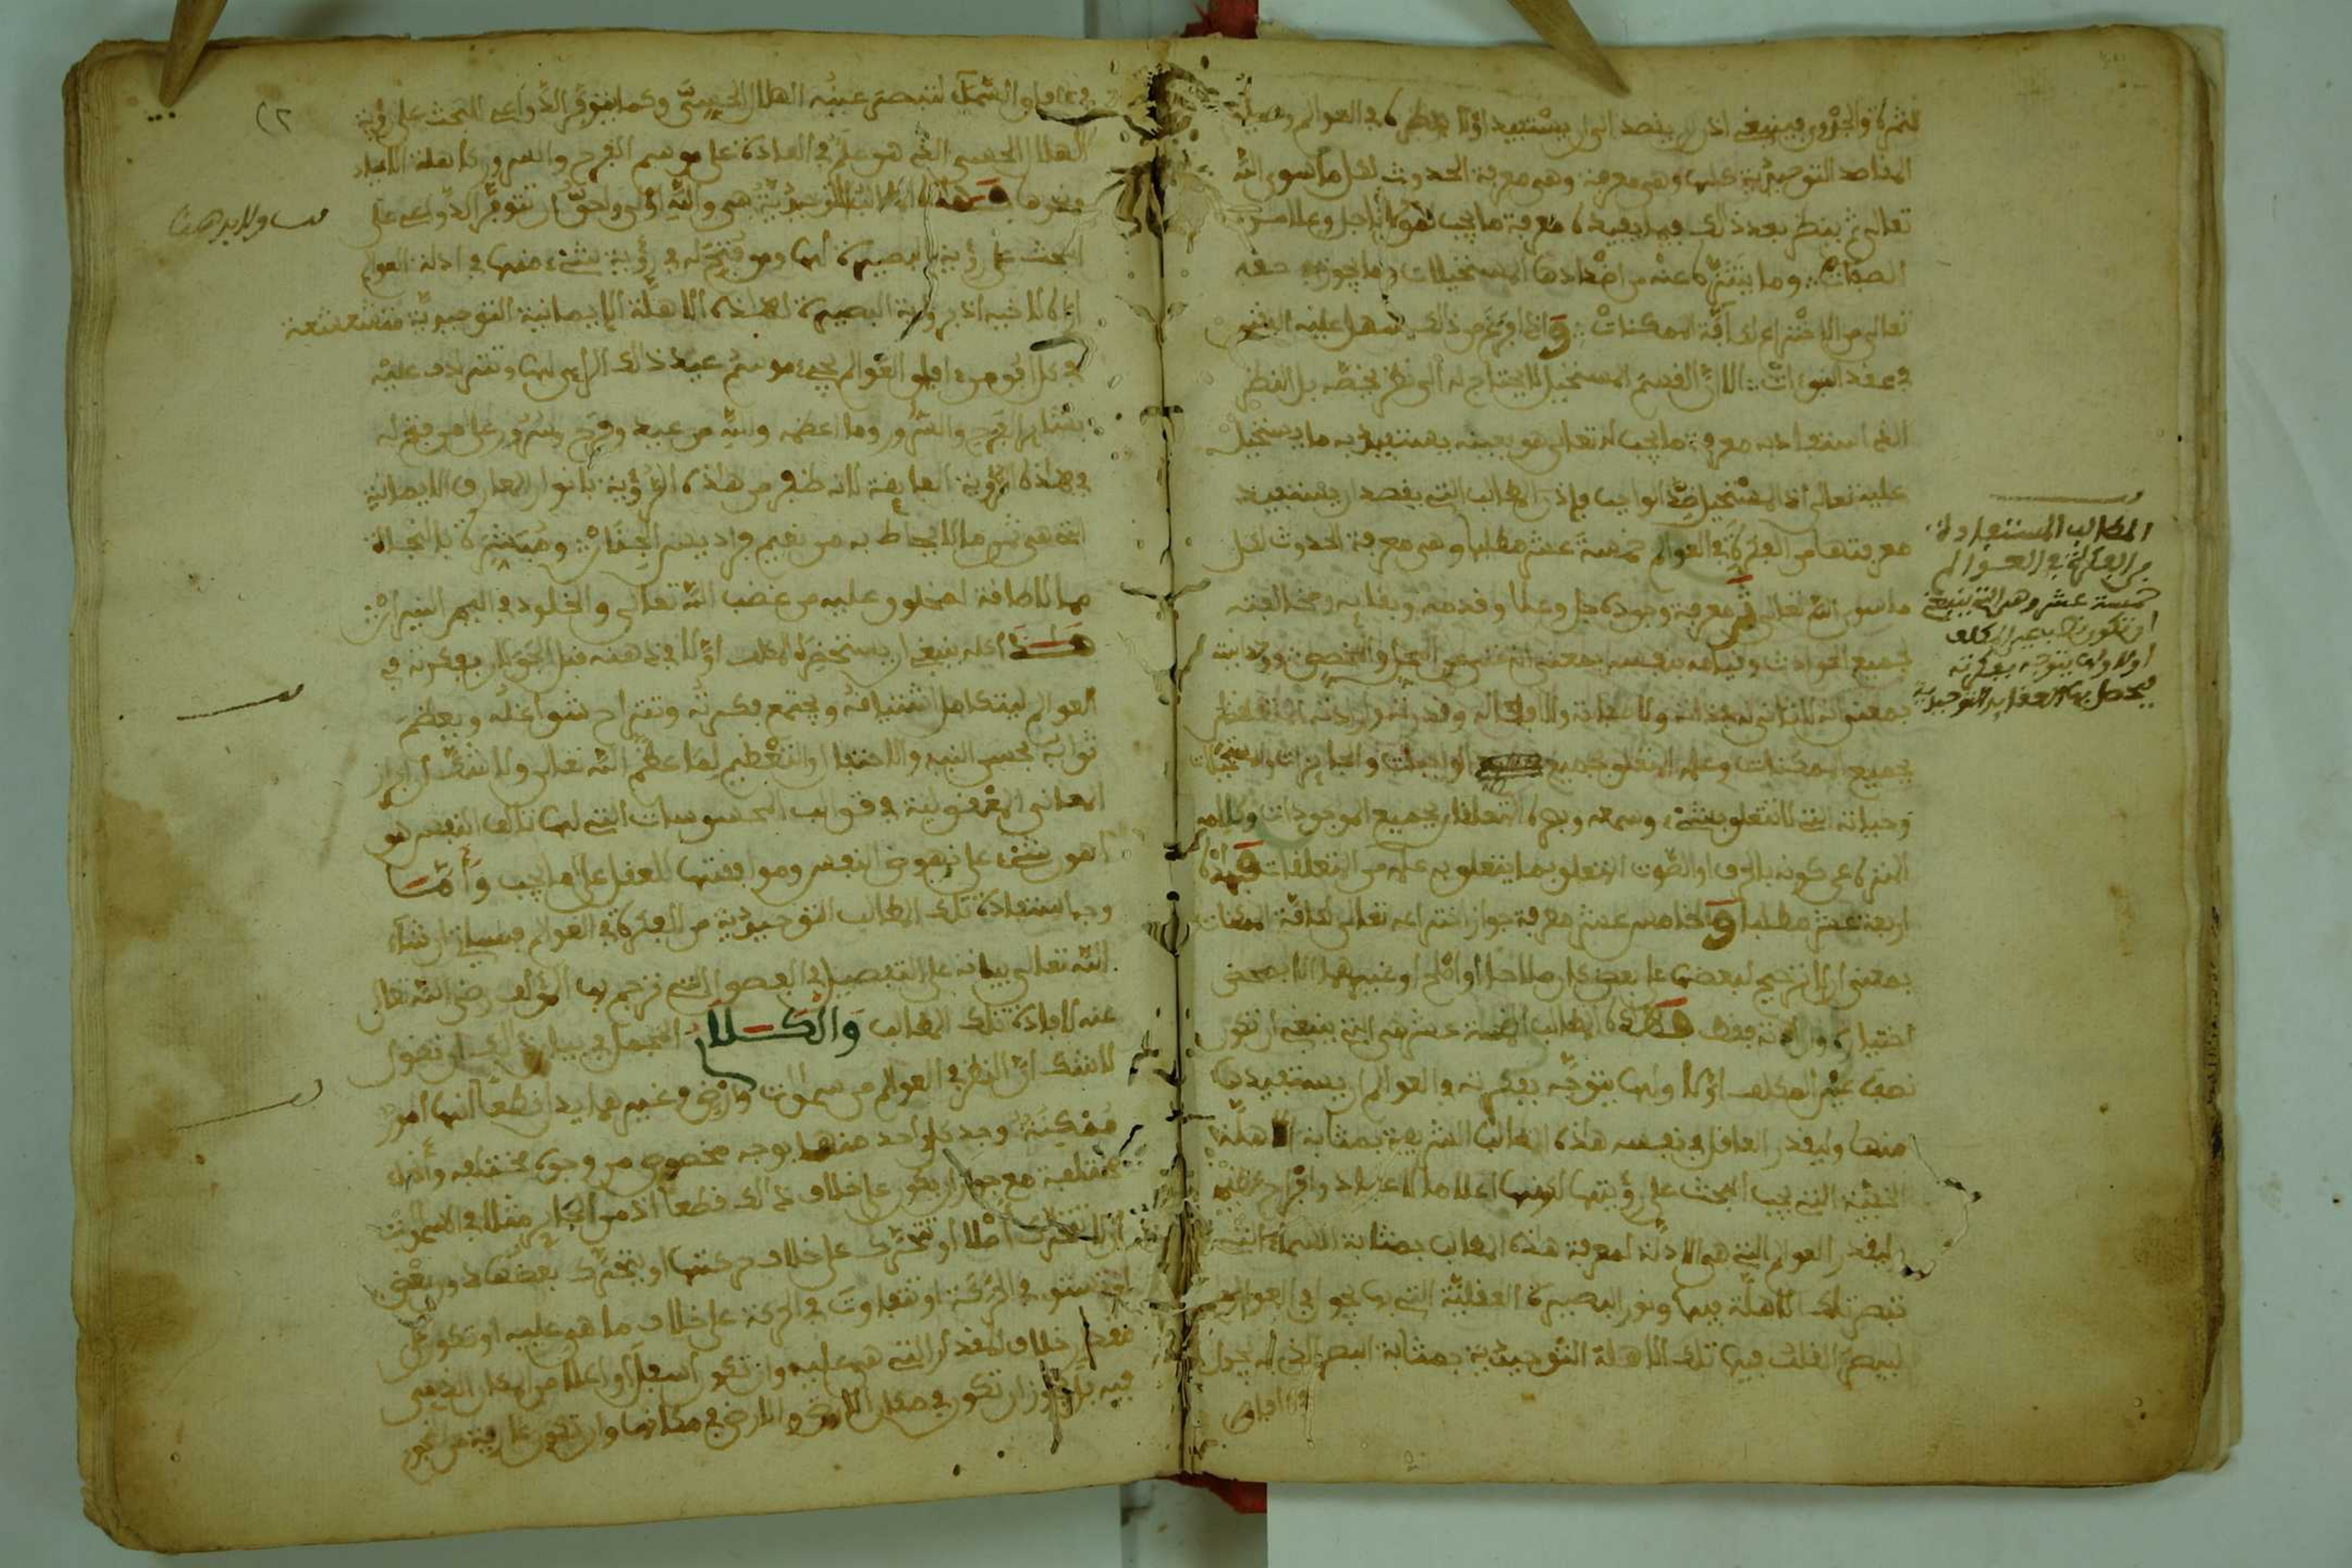 المقاصد التوحيدية عليه وهي معرفة وهي معرفة الحدوث لكل ما سوى الله
تعالى ثم ينظر بعد ذلك فيما يفيده معرفة ما يجب لمولانا جل وعلا من
الصفات وما يتنزه عنه من أضدادها المستحيلات وما يجوز في حقه
تعالى من الاختراع لكافة الممكنات وإذا فرغ من ذلك سهل عليه النظر
في عقد النبوءات إلا أن القسم المستحيل لا يحتاج له إلى نظر يخصه بل النظر
الذي استفاد به معرفة ما يجب له تعالى هو بعينه يستفيد به ما يستحيل
عليه تعالى إذ المستحيل ضد الواجب فإذن المطالب التي يقصد أن يستفيد
معرفتها من الفكرة في العوالم خمسة عشر مطلبا وهي معرفة الحدوث لكل
ما سوى الله تعالى ثم معرفة وجوده جل وعلا وقدمه وبقائه ومخالفته
لجميع الحوادث وقيامه بنفسه بمعنى أنه غني عن المحل والمخصص ووحدانيته
بمعنى أنه لا ثاني له في ذاته ولا صفاته ولا أفعاله وقدرته وإرادته
جميع الممكنات وعلمه المتعلق بجميع الواجبات والجائزات والمستحيلات
وحياته التي لا تتعلق بشيء وسمعه وبصره المتعلقان بجميع الموجودات وكلامه
المنزه عن كونه بالحرف أو الصوت المتعلق بما يتعلق به علمه من المتعلقات فهذه
أربعة عشر مطلبا والخامس عشر معرفة جواز اختراعه تعالى لكافة الممكنات
بمعنى أن لا ترجيح لبعضها على بعض كان صلاحا أو أصلح أو غيرهما إلا بمحض
اختياره وإرادته فقط فهذه المطالب الخمسة عشر هي التي ينبغي أن تكون
نصب عين المكلف أولا ولها يتوجه بفكرته في العوالم أن يستفيدها
منها وليقدر العاقل في نفسه هذه المطالب الشريفة بمثابة الأهلة
التي يجب البحث على رؤيتها لكونها أعلاما لأعياد وأفراح عظيمة
وليقدر العوالم التي هي الأدلة لمعرفة هذه المطالب بمثابة السماء التي
تبصر تلك الأهلة فيها ونور البصيرة العقلية التي بها يجول في العوالم
ليبصر القلب فيها تلك الأهلة التوحيدية بمثابة البصر الذي يجول
في آفاق
المطالب المستفادة
من الفكرة في العوالم
خمسة عشر وهي التي ينبغي
أن تكون نصب عين المكلف
أولا ولها يتوجه بفكرته
فيحصل بها العقائد التوحيدية
في آفاق السماء لتبصر عينه الهلال الحسي وكما تتوفر الدواعي للبحث على رؤية
الهلال الحسي الذي هو علم في العادة على موسم الفرح والسرور كأهلة الأعياد
ونحوها فهذه المطالب التوحيدية هي والله أولى وأحق أن تتوفر الدواعي على
البحث على رؤية البصيرة لها ومن فتح له في رؤية شيء منها في أدلة العوالم
الأهلة الإيمانية التوحيدية متشعشعة
في كل أفق من آفاق العوالم يجيء موسم عيد ذلك الرائي لها وتترادف عليه
بشائر الفرح والسرور وما أعظمه والله من عيد وفرح وسرور على من فتح له
في هذه الرؤية الفائقة لأنه ظفر من هذه الرؤية بأنوار المعارف الإيمانية
التي هي ثمن ما لا يحاط به من نعيم فراديس الجنان ومبشرة بالنجاة
مما لا طاقة لمخلوق عليه من غضب الله تعالى والخلود في أليم النيران
هذا كله ينبغي أن يستحضره المكلف أولا في ذهنه قبل الجولان بفكرته في
العوالم ليتكامل اشتياقه ويجتمع فكرته وتنزاح شواغله ويعظم
ثوابه بحسن النية والاحتفال والتعظيم لما عظم الله تعالى ولا شك أن إبراز
المعاني المعقولية في قوالب المحسوسات التي لها تألف النفس هو
أهون شيء على نهوض النفس وموافقتها للعقل على ما يجب وأما
وجه استفادة تلك المطالب التوحيدية من الفكرة في العوالم فسيأتي إن شاء
الله تعالى بيانه على التفصيل في الفصول التي ترجم بها المؤلف رضي الله تعالى
عنه لإفادة تلك المطالب والكلام المجمل في بيان ذلك أن تقول
لا شك أن النظر في العوالم من سموات وأرض وغيرهما يدل قطعا أنها أمور
ممكنة وجد كل واحد منها بوجه مخصوص من وجوه مختلفة
مختلفة مع جواز أن يكون على خلاف ذلك قطعا إذ من الجائز مثلا في السموات
أن لا تتحرك أصلا أو تتحرك على خلاف حركتها أو يتحرك بعضها دون بعض
في الحركة أو تتفاوت في الحركة على خلاف ما هو عليه أو تكون على
خلاف المقدار التي هي عليه وأن تكون أسفل أو أعلا من المكان الذي هي
فيه بل يجوز أن تكون في مكان الأرض والأرض في مكانها وأن تكون عارية من